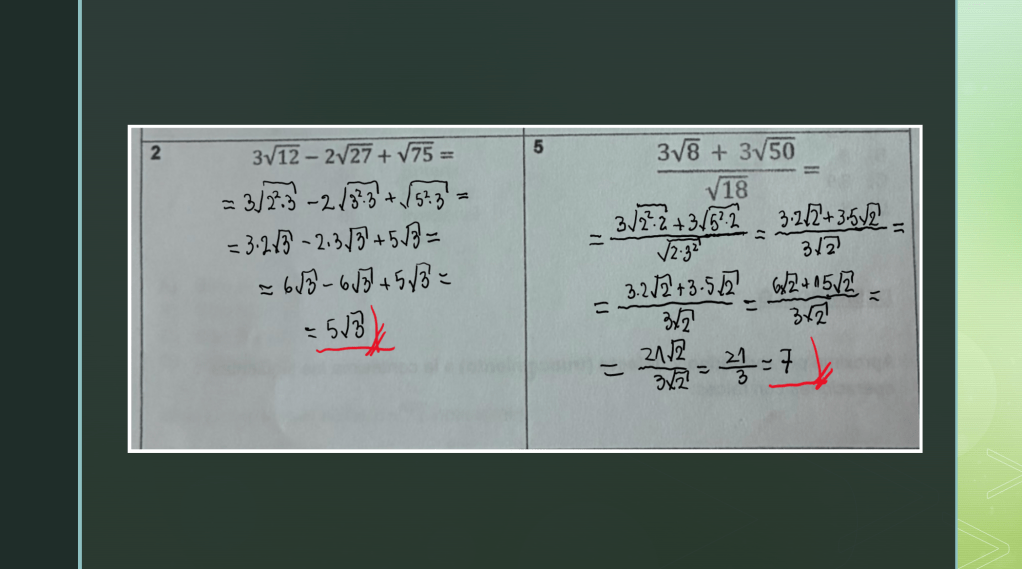 2
3√12 − 2√27 + √75 =
= 3√2²·3 − 2√3²·3 + √5²·3 =
= 3·2√3 − 2·3√3 + 5√3 =
= 6√3 − 6√3 + 5√3 =
= 5√3
5
(3√8 + 3√50)/√18 =
= (3√2²·2 + 3√5²·2)/√2·3² = (3·2√2 + 3·5√2)/3√2 =
= (3·2√2 + 3·5√2)/3√2 = (6√2 + 15√2)/3√2 =
= 21√2/3√2 = 21/3 = 7